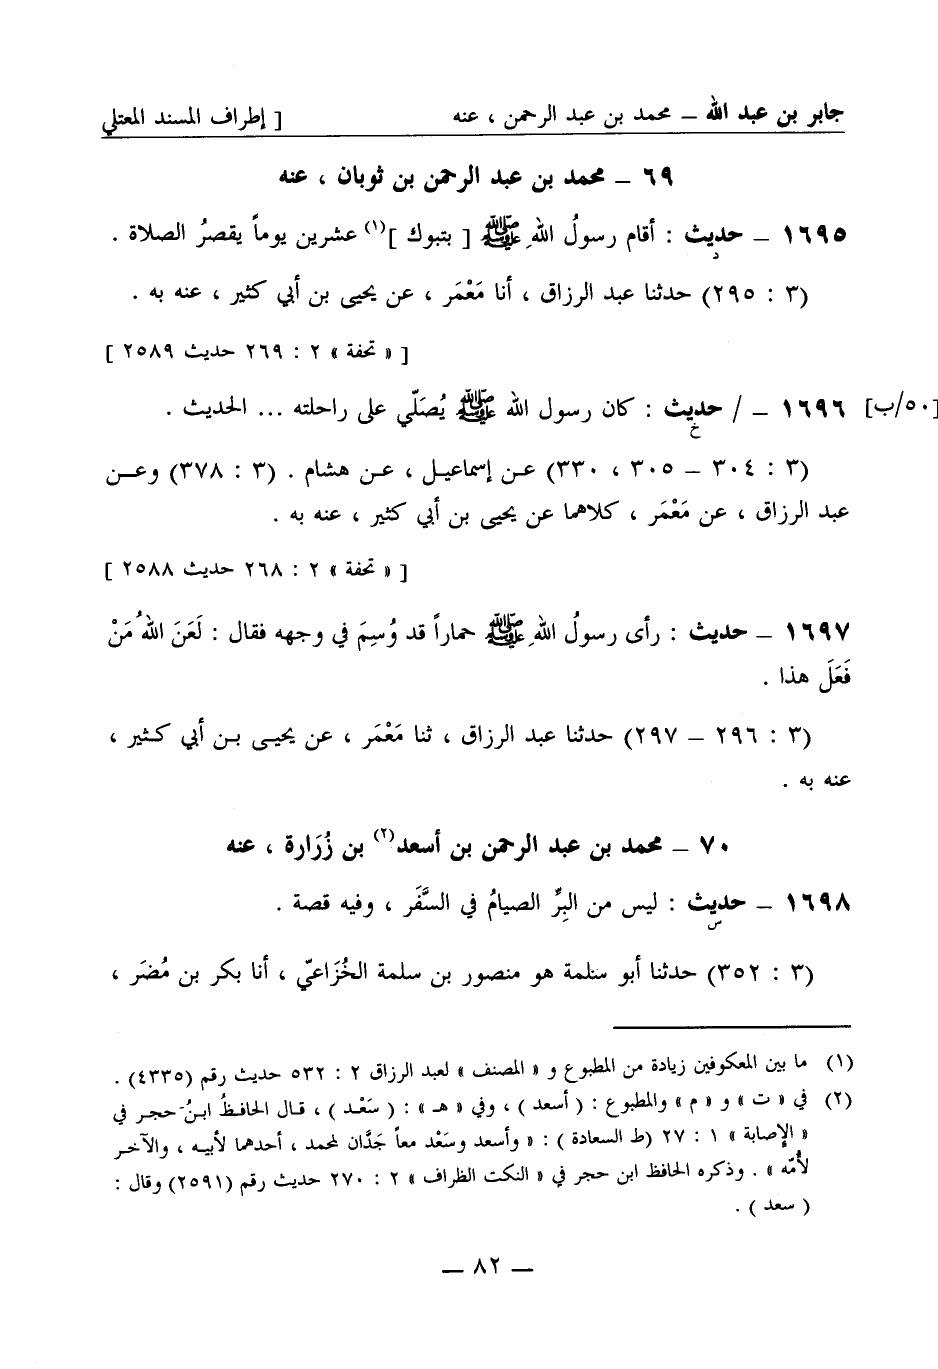 جابر بن عبد الله ــ محمد بن عبد الرحمن ، عنه [ إطراف المسند المعتلي
٦٩ ــ محمد بن عبد الرحمن بن ثوبان ، عنه
١٦٩٥ ــ حديث : أقام رسولُ اللهِ ﷺ [ بتبوك ](١) عشرين يوماً يقصرُ الصلاة .
د
(٣ : ٢٩٥) حدثنا عبد الرزاق ، أنا مَعْمَر ، عن يحيى بن أبي كثير ، عنه به .
[ « تحفة » ٢ : ٢٦٩ حديث ٢٥٨٩ ]
[٥٠/ب] ١٦٩٦ ــ / حديث : كان رسول الله ﷺ يُصَلّي على راحلته ... الحديث .
خ
(٣ : ٣٠٤ ــ ٣٠٥ ، ٣٣٠) عن إسماعيل ، عن هشام . (٣ : ٣٧٨) وعن
عبد الرزاق ، عن مَعْمَر ، كلاهما عن يحيى بن أبي كثير ، عنه به .
[ « تحفة » ٢ : ٢٦٨ حديث ٢٥٨٨ ]
١٦٩٧ ــ حديث : رأى رسولُ اللهِ ﷺ حماراً قد وُسِمَ في وجهه فقال : لَعَنَ اللهُ مَنْ
فَعَلَ هذا .
(٣ : ٢٩٦ ــ ٢٩٧) حدثنا عبد الرزاق ، ثنا مَعْمَر ، عن يحيى بن أبي كثير ،
عنه به .
٧٠ ــ محمد بن عبد الرحمن بن أسعد(٢) بن زُرَارة ، عنه
١٦٩٨ ــ حديث : ليس من البِرِّ الصيامُ في السَّفَر ، وفيه قصة .
س
(٣ : ٣٥٢) حدثنا أبو سلمة هو منصور بن سلمة الخُزَاعيّ ، أنا بكر بن مُضَر ،
(١) ما بين المعكوفين زيادة من المطبوع و « المصنف » لعبد الرزاق ٢ : ٥٣٢ حديث رقم (٤٣٣٥) .
(٢) في « ت » و « م » والمطبوع : ( أسعد ) ، وفي « هـ » : ( سَعْد ) ، قال الحافظُ ابنُ حجر في
« الإصابة » ١ : ٢٧ (ط السعادة ) : « وأسعد وسَعْد معاً جَدَّان لمحمد ، أحدهما لأبيه ، والآخر
لأُمّه » . وذكره الحافظ ابن حجر في « النكت الظراف » ٢ : ٢٧٠ حديث رقم (٢٥٩١) وقال :
( سعد ) .
ــ ٨٢ ــ